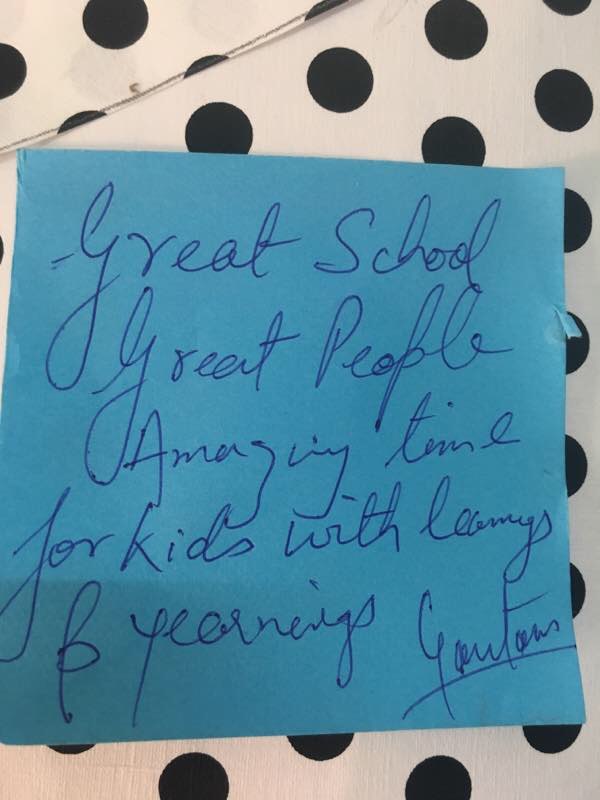 Great School
Great People
Amazing time
for kids with learnings
& yearnings Gautam